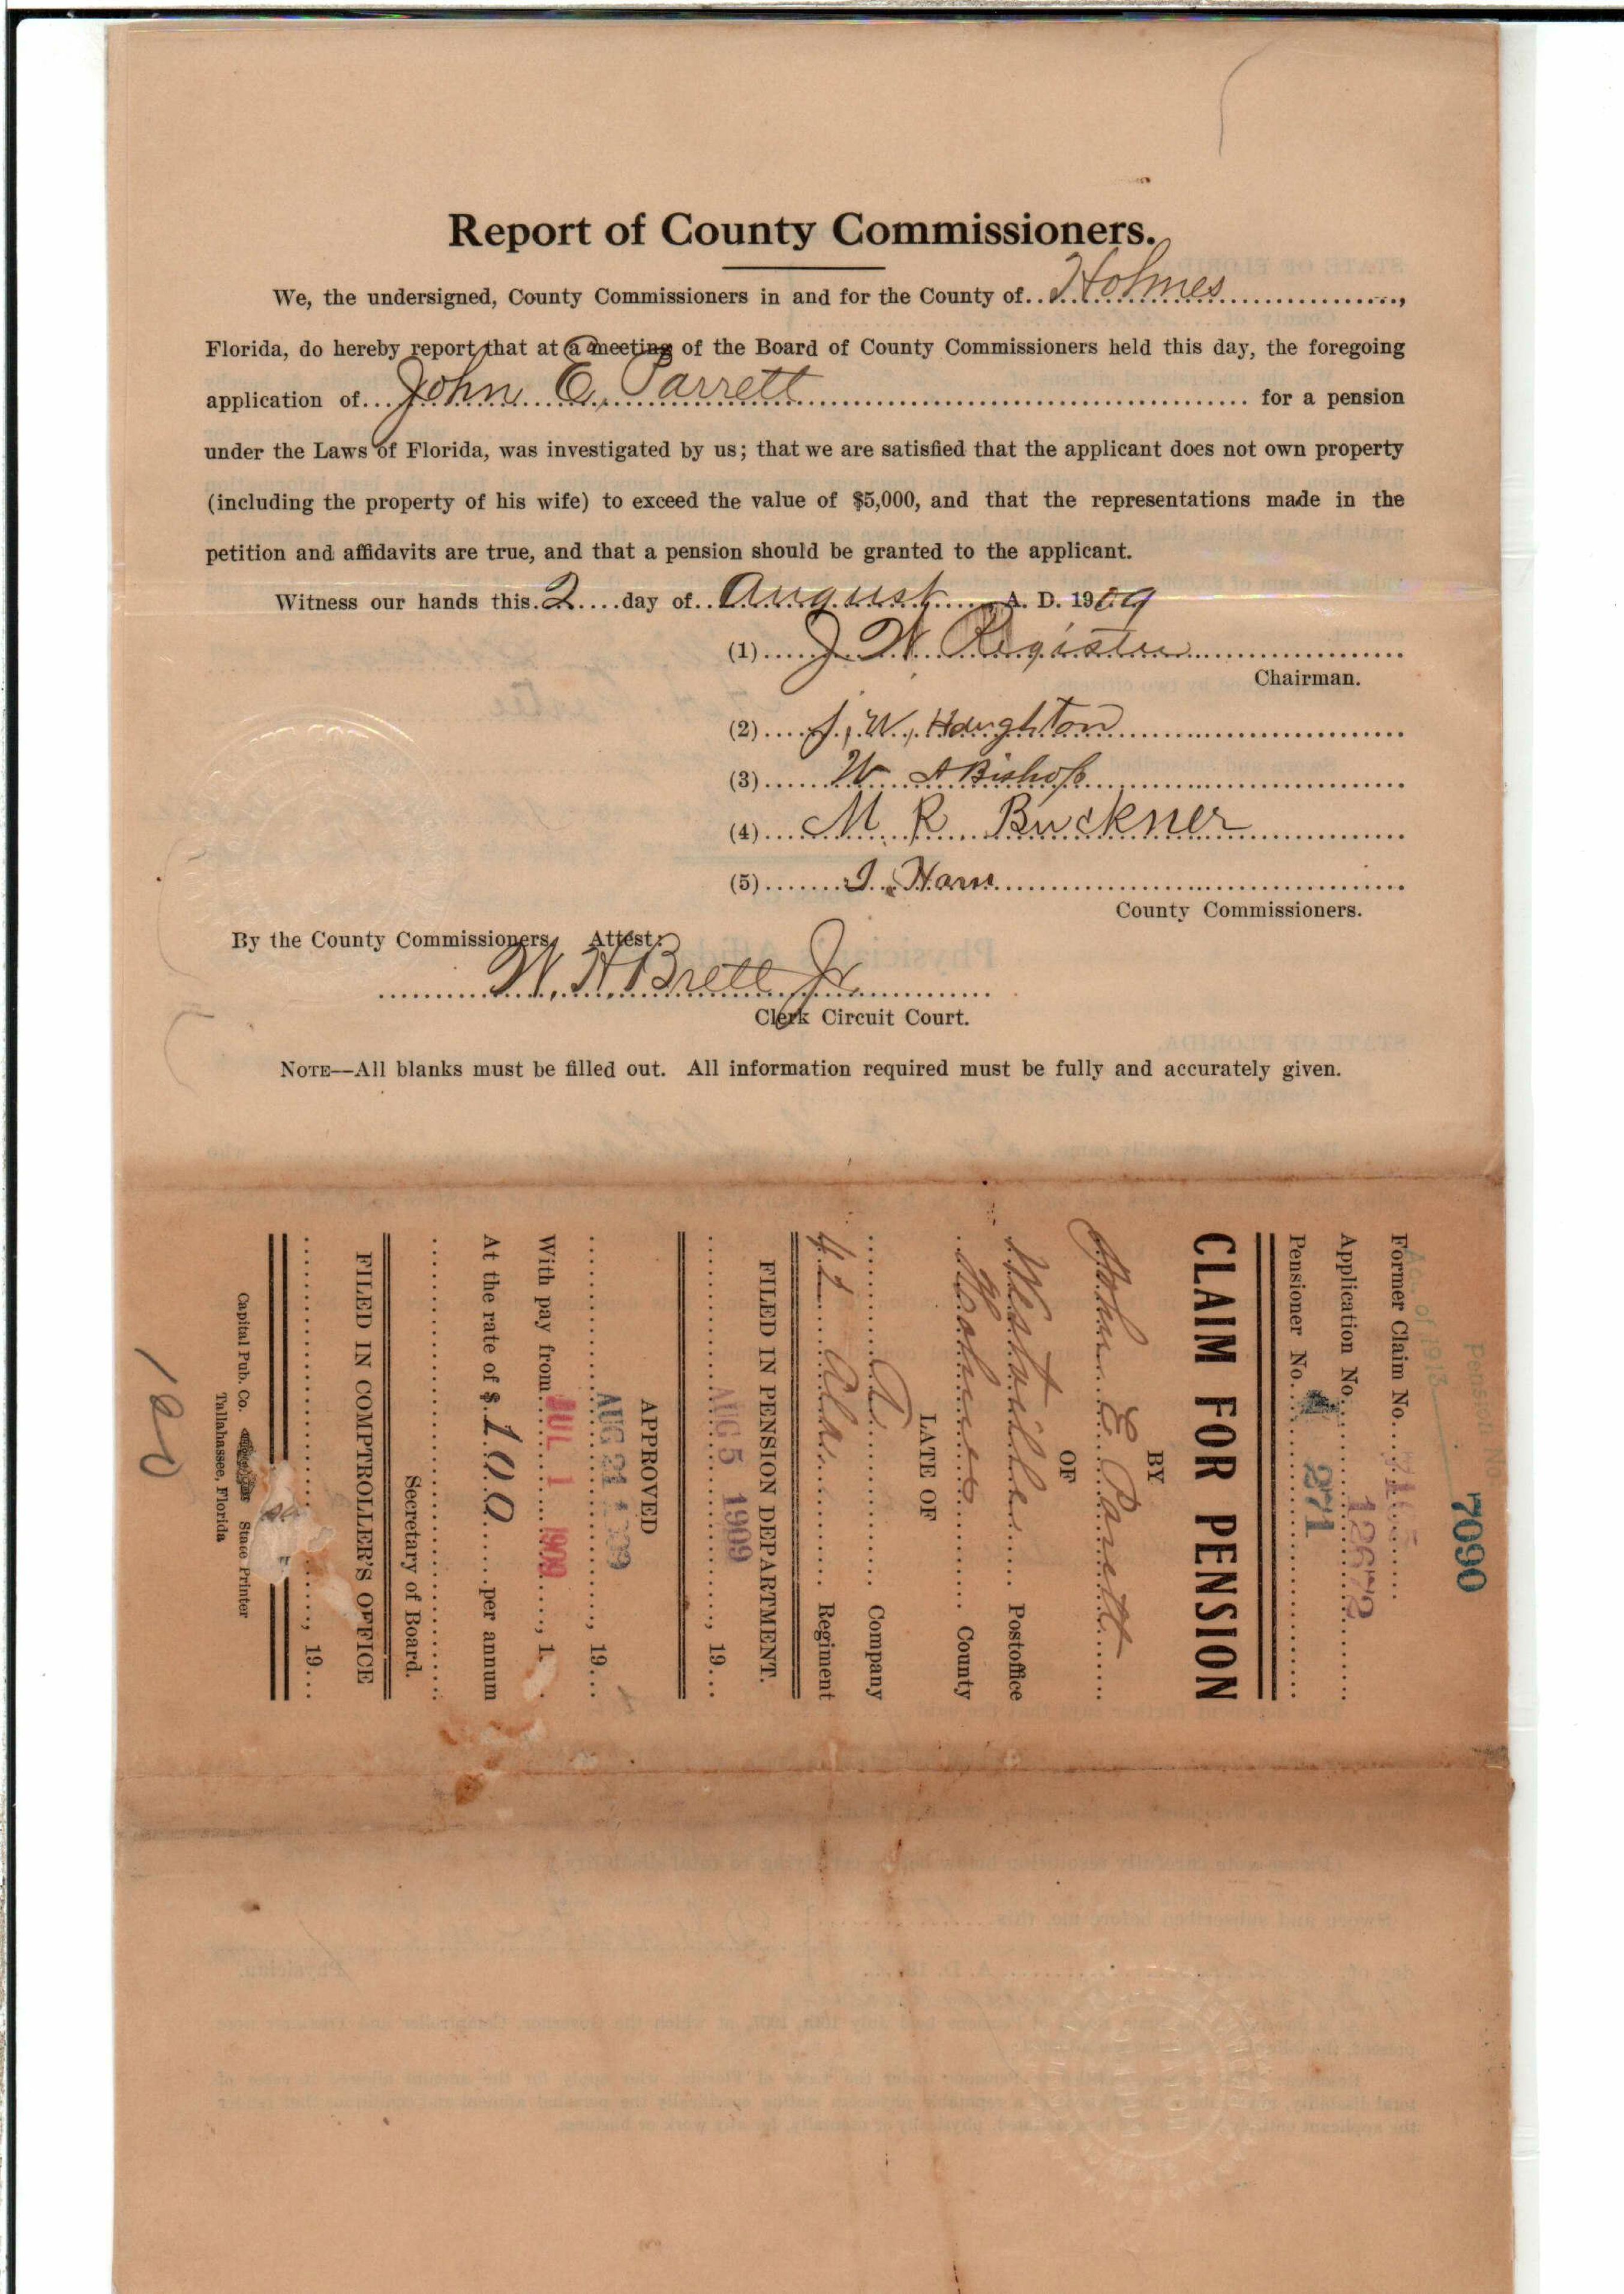 Report of County Commissioners.
We, the undersigned, County Commissioners in and for the County of Holmes,
Florida, do hereby report that at a meeting of the Board of County Commissioners held this day, the foregoing
application of John E. Parrett for a pension
under the Laws of Florida, was investigated by us; that we are satisfied that the applicant does not own property
(including the property of his wife) to exceed the value of $5,000, and that the representations made in the
petition and affidavits are true, and that a pension should be granted to the applicant.
Witness our hands this 2 day of August A. D. 1909
(1) J W Register
Chairman.
(2) J. W. Haughton
(3) W A Bishop
(4) M. R. Buckner
(5) I. Ham
County Commissioners.
By the County Commissioners, Attest:
W. H. Brett Jr.
Clerk Circuit Court.
NOTE—All blanks must be filled out. All information required must be fully and accurately given.
Pension No. 7090
Act of 1913
Former Claim No.
Application No. 12672
Pensioner No. 271
CLAIM FOR PENSION
BY
John E Parrett
OF
Westville Postoffice
Holmes County
LATE OF
Company
Ala. Regiment
FILED IN PENSION DEPARTMENT.
AUG 5 1909, 19
APPROVED
AUG 21 1909, 19
With pay from JUL 1 1909, 1
At the rate of $ 100 per annum
Secretary of Board.
FILED IN COMPTROLLER'S OFFICE
, 19
Capital Pub. Co. State Printer
Tallahassee, Florida